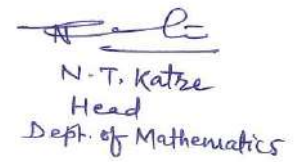 N. T. Katre
Head
Dept. of Mathematics